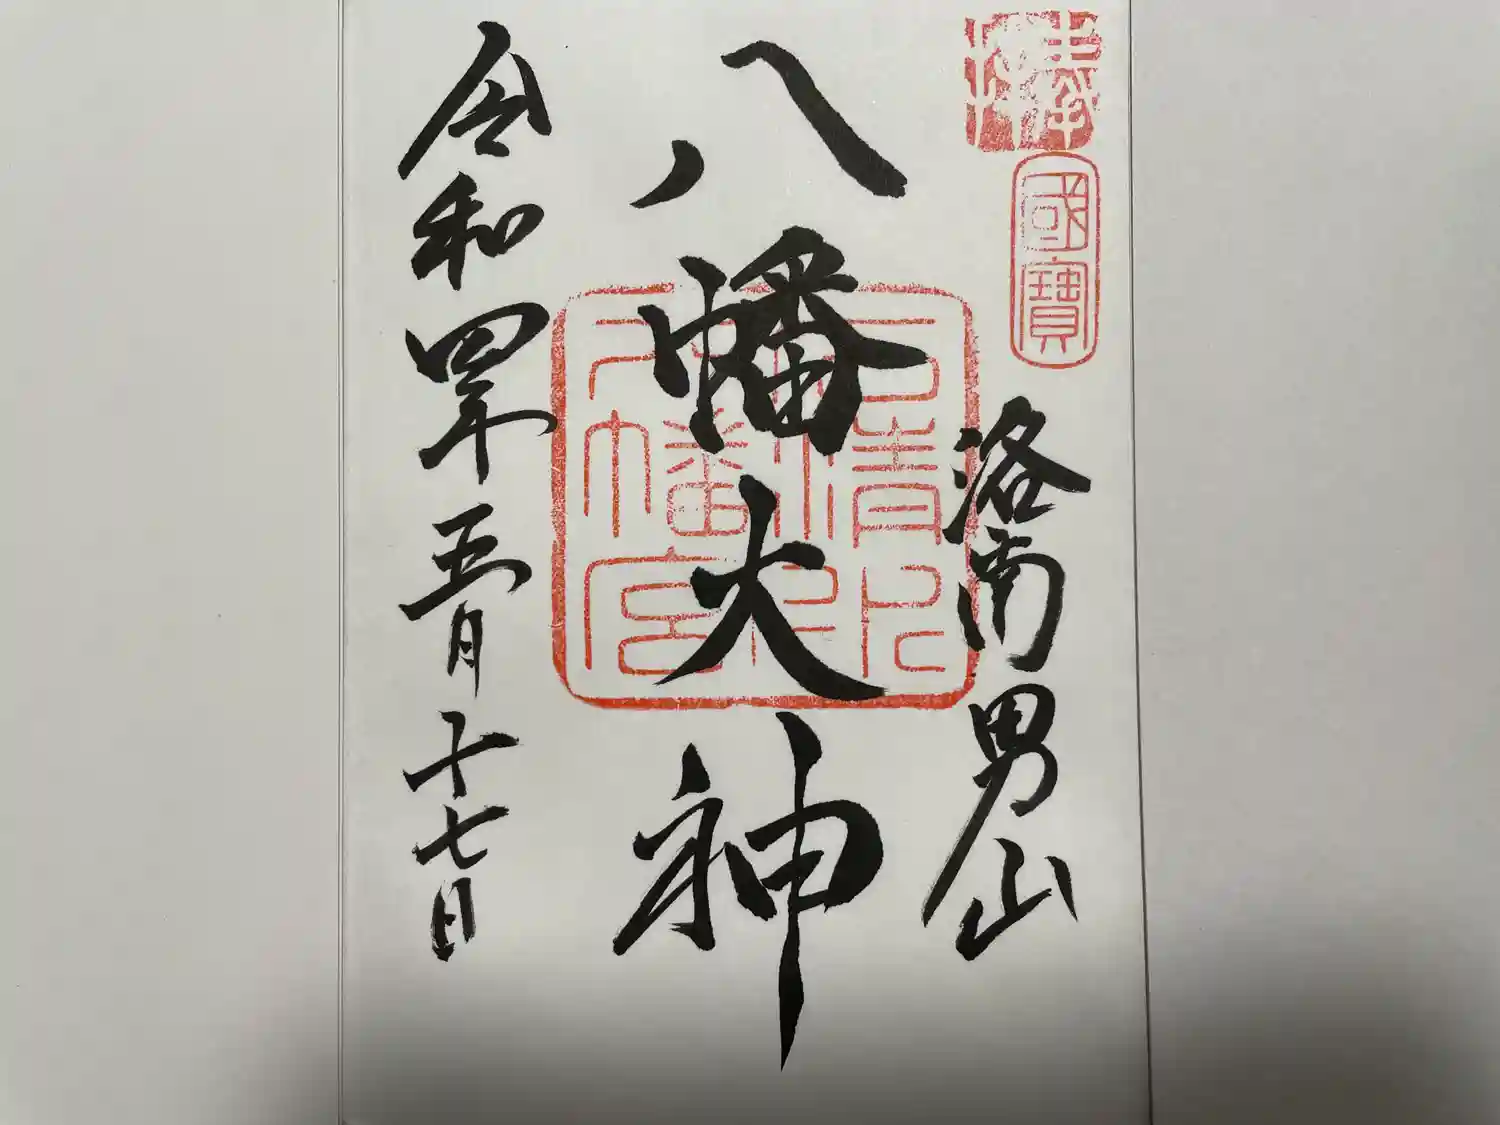 奉拝
國寶
洛南男山
八幡大神
石清水
八幡宮
令和四年五月十七日